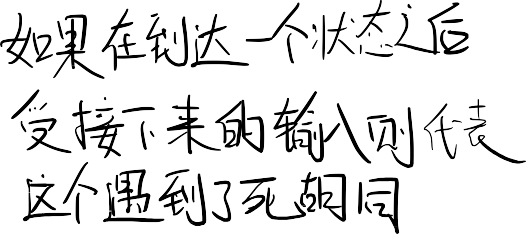 如果在到达一个状态之后
受接下来的输入则代表
这个遇到了死胡同